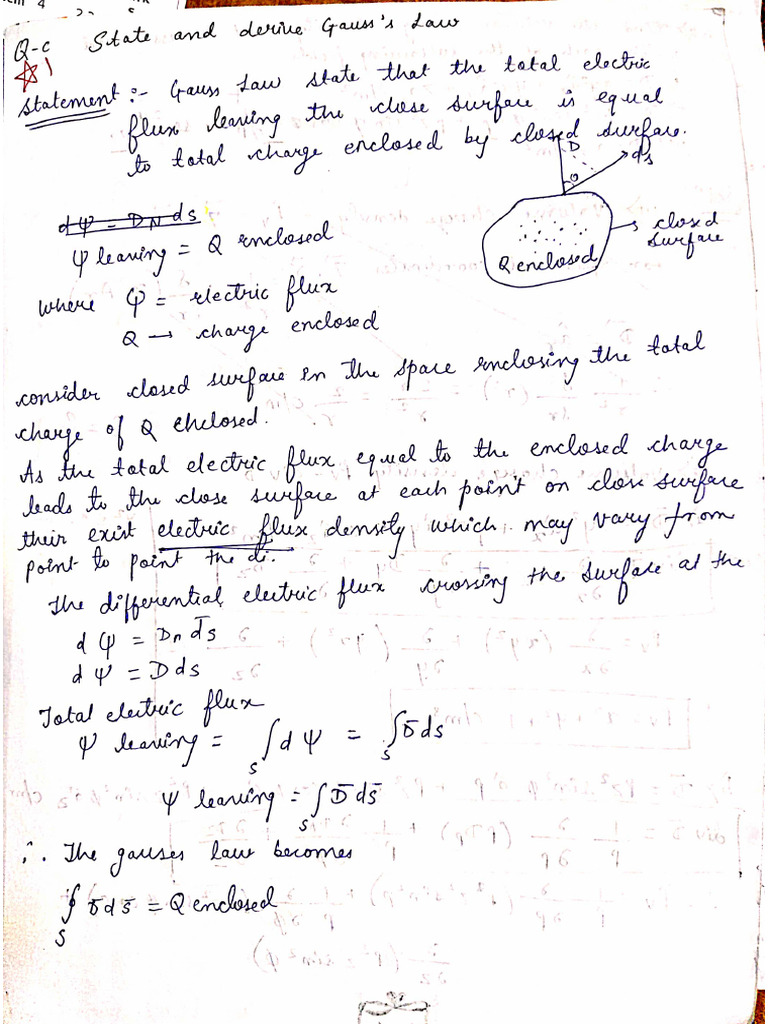 Q-c State and derive Gauss's Law
1
Statement :- Gauss Law state that the total electric
flux leaving the close surface is equal
to total charge enclosed by closed surface.
D
ds
θ
closed
surface
Q enclosed
dΨ = D_N ds
Ψ leaving = Q enclosed
where Ψ = electric flux
Q → charge enclosed
consider closed surface in the space enclosing the total
charge of Q enclosed.
As the total electric flux equal to the enclosed charge
leads to the close surface at each point on close surface
their exist electric flux density which may vary from
point to point the di.
The differential electric flux crossing the surface at the
dΨ = Dn d̄s
dΨ = D ds
Total electric flux
Ψ leaving = ∫_S dΨ = ∫_S D̄ ds
Ψ leaving = ∫_S D̄ ds̄
∴ The gauses law becomes
∮_S D̄ d s̄ = Q enclosed